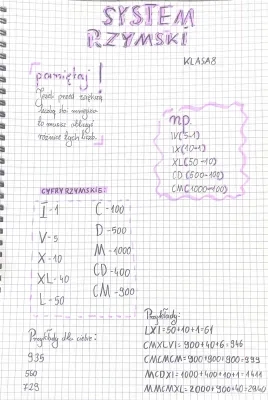 SYSTEM
RZYMSKI
KLASA 8
pamiętaj!
Jeśli przed większą
liczbą stoi mniejsza
to musisz obliczyć
różnicę tych liczb.
np.
IV(5-1)
IX(10-1)
XL(50-10)
CD(500-100)
CM(1000-100)
CYFRY RZYMSKIE:
I-1
V-5
X-10
XL-40
L-50
C-100
D-500
M-1000
CD-400
CM-900
Przykłady dla ciebie:
935
540
729
Przykłady:
LXI=50+10+1=61
CMXLVI=900+40+6=946
CMCMCM=900+900+900=999
MCDXI=1000+400+10+1=1411
MMCMXL=2000+900+40=2940